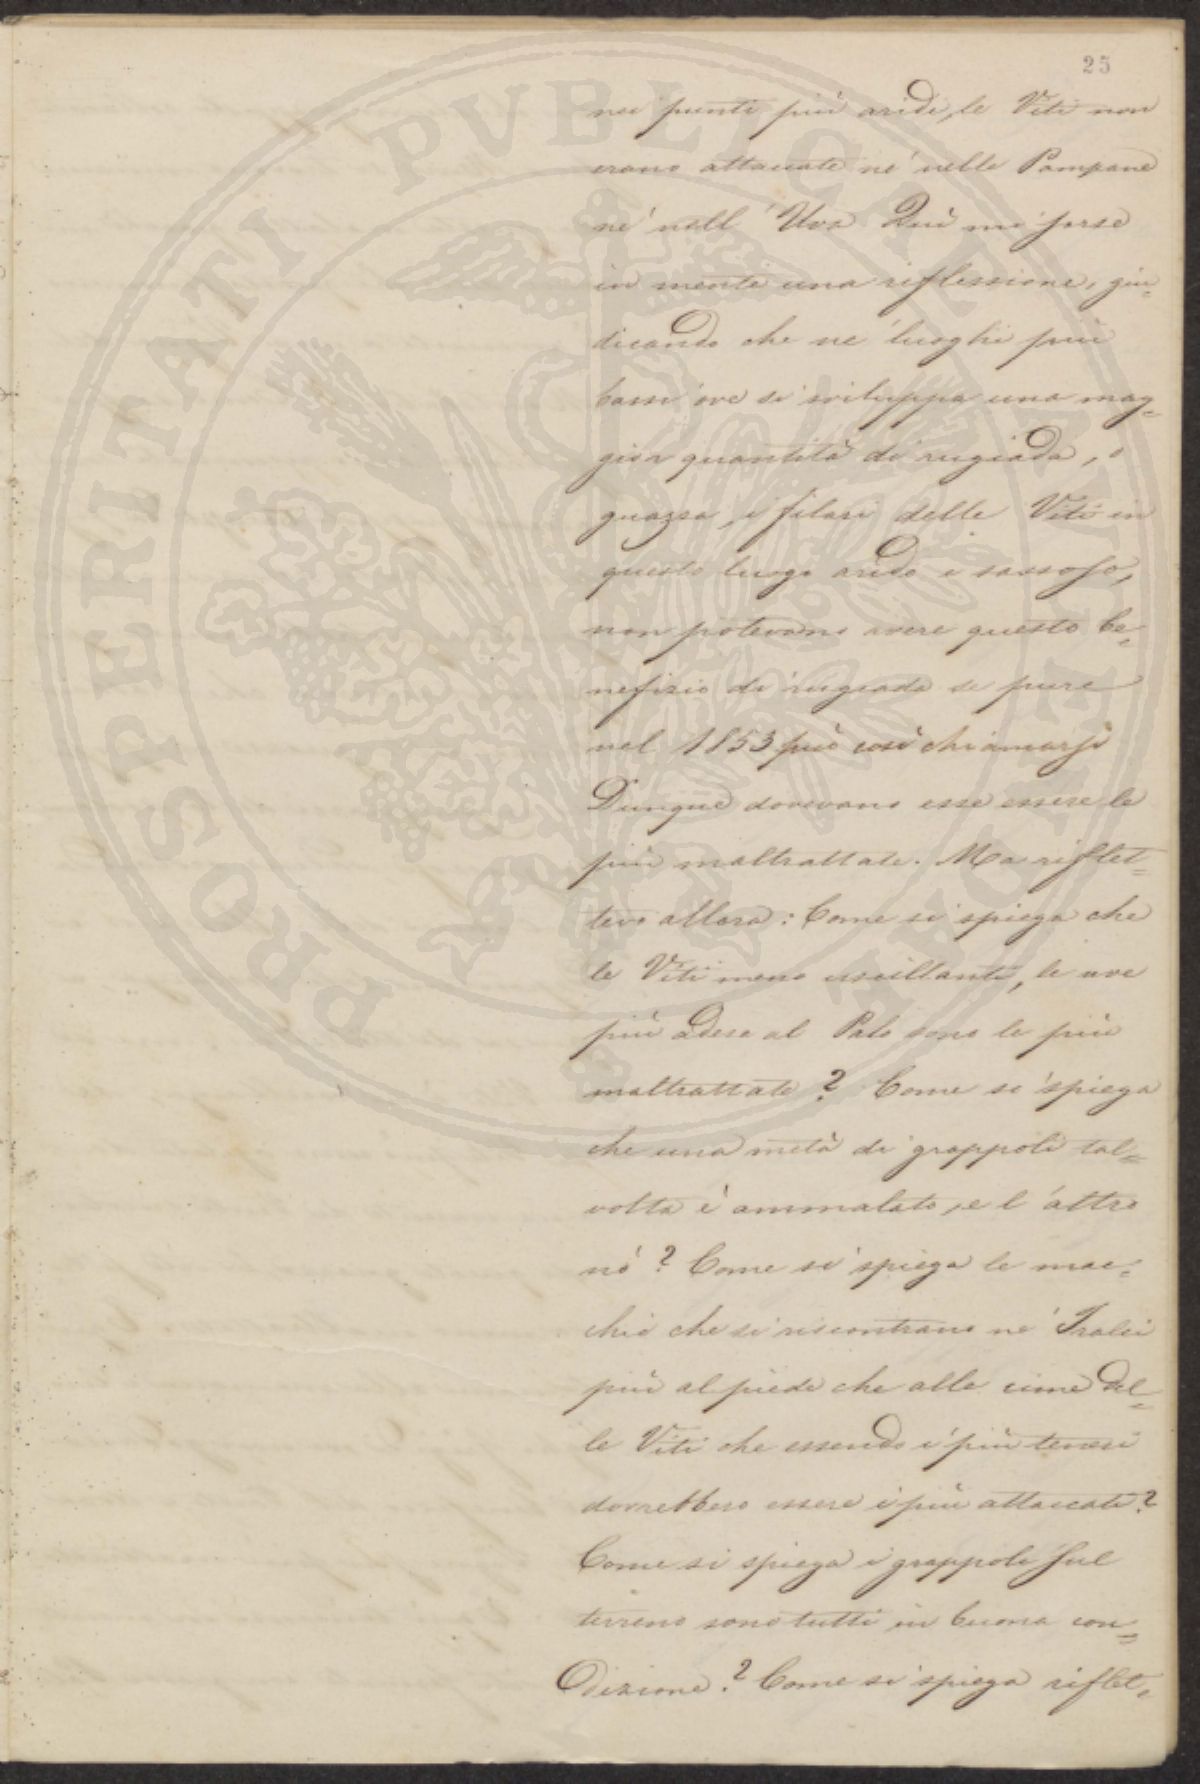 25
nei punti più aridi, le Viti non
erano attaccate nè nelle Pampane
nè nell' Uva Quì mi sorse
in mente una riflessione, giu=
dicando che ne' luoghi più
bassi ove si sviluppa una mag=
gior quantità di rugiada, o
guazza, i filari delle Viti in
questo luogo arido e sassoso,
non potevano avere questo be=
nefizio di rugiada se pure
nel 1853 può così chiamarsi
Dunque dovevano esse essere le
più maltrattate. Ma riflet=
tevo allora: Come si spiega che
le Viti meno oscillanti, le uve
più adese al Palo sono le più
maltrattate? Come si spiega
che una metà di grappoli tal=
volta è ammalato, e l'altro
nò? Come si spiega le mac=
chie che si riscontrano ne' Tralci
più al piede che alle cime del=
le Viti che essendo i più teneri
dovrebbero essere i più attaccati?
Come si spiega i grappoli sul
terreno sono tutti in buona con=
dizione? Come si spiega riflet=
PROSPERITATI PVBLICAE